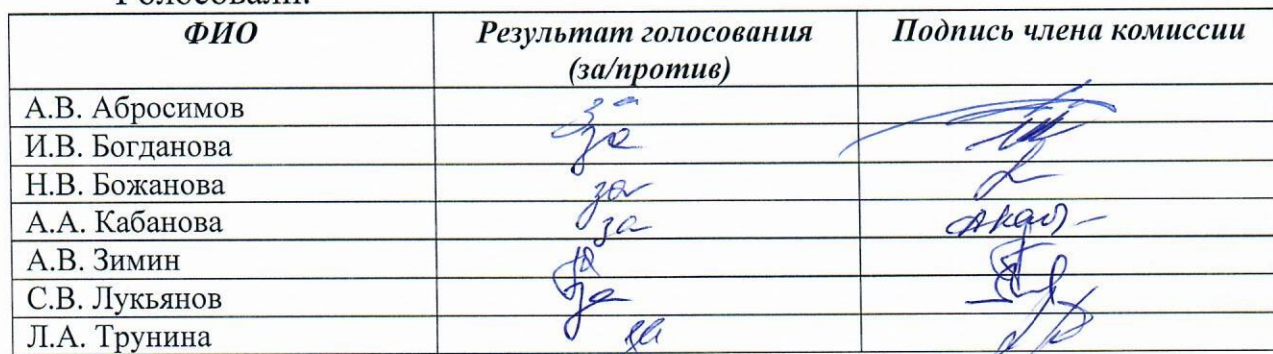 Голосовали:
ФИО Результат голосования Подпись члена комиссии
(за/против)
А.В. Абросимов за
И.В. Богданова за
Н.В. Божанова за
А.А. Кабанова за
А.В. Зимин за
С.В. Лукьянов за
Л.А. Трунина за